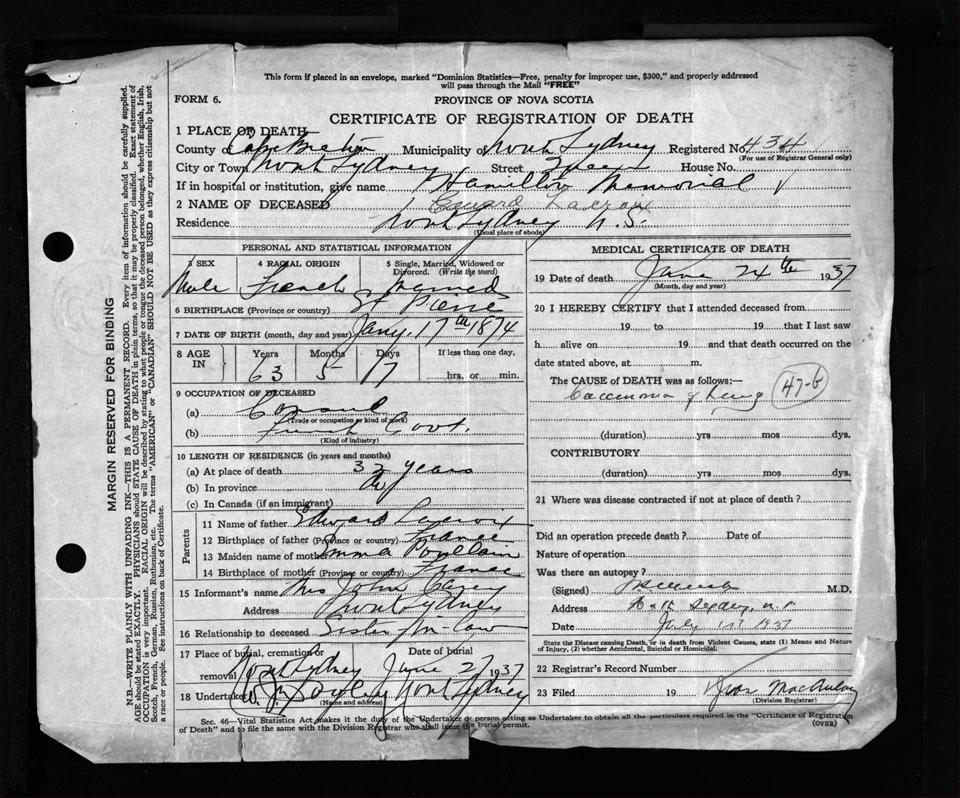 This form if placed in an envelope, marked "Dominion Statistics—Free, penalty for improper use, $300," and properly addressed
will pass through the Mail "FREE"
FORM 6.
PROVINCE OF NOVA SCOTIA
CERTIFICATE OF REGISTRATION OF DEATH
1 PLACE OF DEATH
County of Cape Breton Municipality of North Sydney Registered No. 434
(For use of Registrar General only)
City or Town North Sydney Street House No.
If in hospital or institution, give name Hamilton Memorial
2 NAME OF DECEASED
Residence North Sydney N. S.
(Usual place of abode)
PERSONAL AND STATISTICAL INFORMATION
3 SEX 4 RACIAL ORIGIN 5 Single, Married, Widowed or
Divorced. (Write the word)
Male French Married
6 BIRTHPLACE (Province or country) St Pierre
7 DATE OF BIRTH (month, day and year) Jany. 17th 1874
8 AGE IN Years Months Days If less than one day,
63 5 17 hrs. or min.
9 OCCUPATION OF DECEASED
(a) Consul
(Trade or occupation or kind of work)
(b) French Govt.
(Kind of industry)
10 LENGTH OF RESIDENCE (in years and months)
(a) At place of death years
(b) In province do
(c) In Canada (if an immigrant)
Parents
11 Name of father Edward Lacroix
12 Birthplace of father (Province or country) France
13 Maiden name of mother Emma Poullain
14 Birthplace of mother (Province or country) France
15 Informant's name Mrs John
Address North Sydney
16 Relationship to deceased Sister in law
17 Place of burial, cremation or removal Date of burial
North Sydney June 27 1937
18 Undertaker North Sydney
(Name and address)
MEDICAL CERTIFICATE OF DEATH
19 Date of death June 24th 1937
(Month, day and year)
20 I HEREBY CERTIFY that I attended deceased from
19 to 19 that I last saw
h. alive on 19 and that death occurred on the
date stated above, at m.
The CAUSE of DEATH was as follows:—
Carcinoma of Lung 47-b
(duration) yrs mos dys.
CONTRIBUTORY
(duration) yrs. mos. dys.
21 Where was disease contracted if not at place of death?
Did an operation precede death? Date of
Nature of operation
Was there an autopsy?
(Signed) M.D.
Address North Sydney, N.S.
Date July 1937
State the Disease causing Death, or in death from Violent Causes, state (1) Means and Nature
of Injury, (2) whether Accidental, Suicidal or Homicidal.
22 Registrar's Record Number
23 Filed 19
(Division Registrar)
Sec. 46—Vital Statistics Act makes it the duty of the Undertaker or person acting as Undertaker to obtain all the particulars required in the "Certificate of Registration
of Death" and to file the same with the Division Registrar who shall issue the burial permit.
(OVER)
MARGIN RESERVED FOR BINDING
N.B.—WRITE PLAINLY WITH UNFADING INK—THIS IS A PERMANENT RECORD. Every item of information should be carefully supplied.
AGE should be stated EXACTLY. PHYSICIANS should STATE CAUSE OF DEATH in plain terms, so that it may be properly classified. Exact statement of
OCCUPATION is very important. RACIAL ORIGIN will be described by stating to what people or tongue the deceased person belonged, whether English, Irish,
Scotch, French, German, Russian, Ruthenian, etc. The terms "AMERICAN" or "CANADIAN" SHOULD NOT BE USED as they express citizenship but not
a race or people. See instructions on back of Certificate.